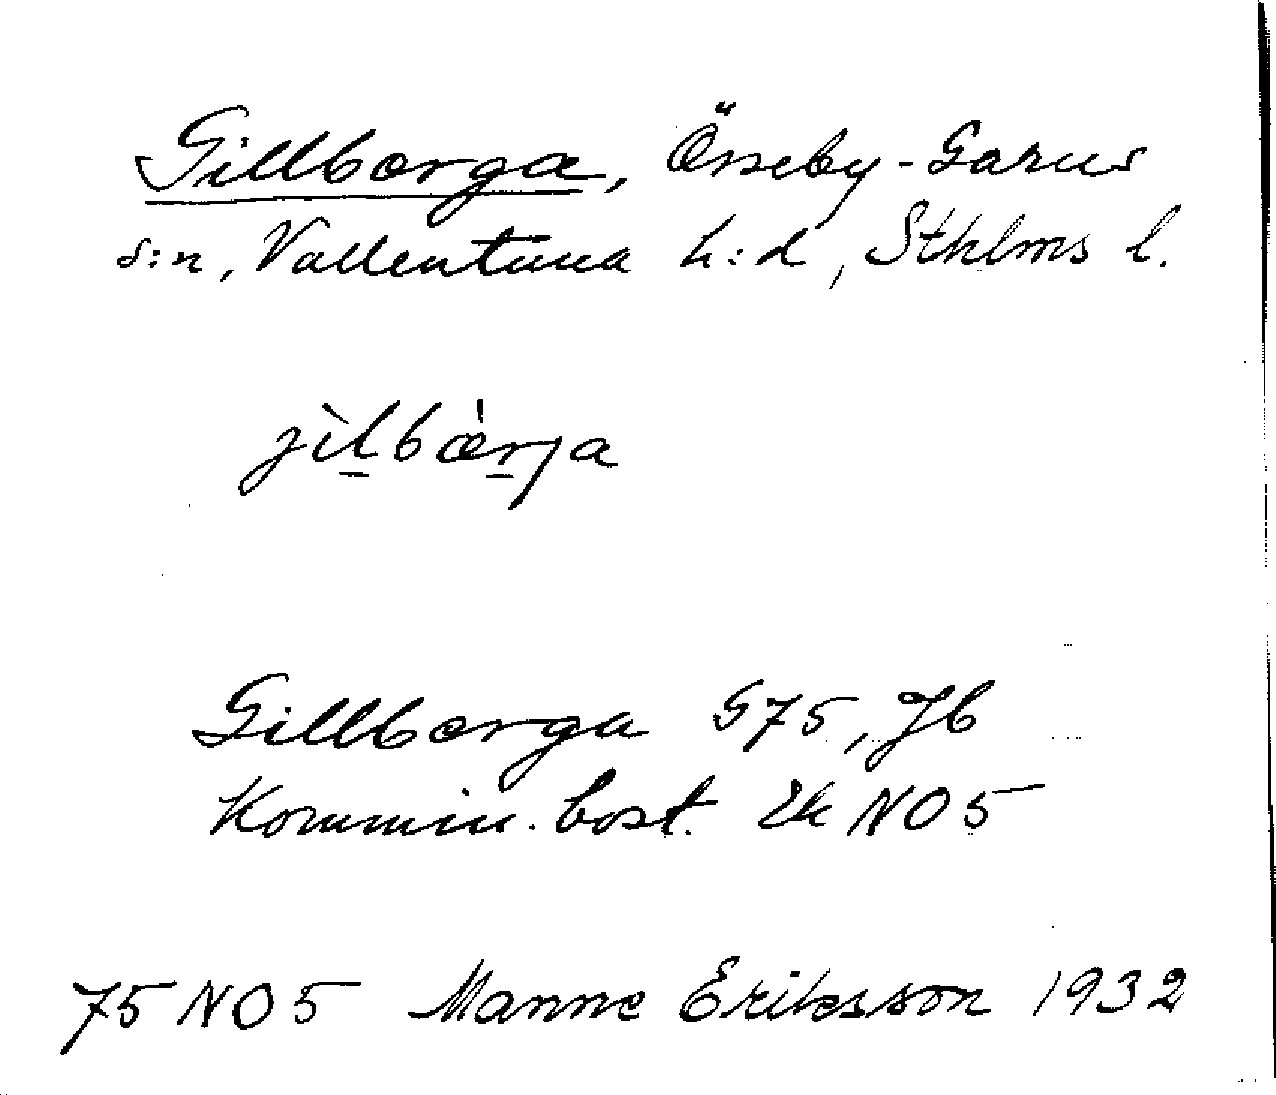 Gillberga, Össeby-Garns
s:n, Vallentuna h:d, Sthlms l.
jìlbær̀ja
Gillberga G75, Jb
Kommin. bost. Ek NO5
75 NO 5 Manne Eriksson 1932